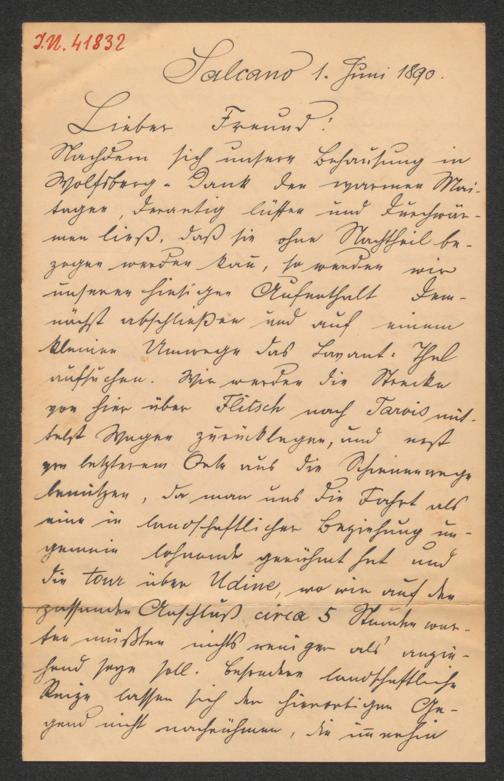 I.N. 41832
Salcano 1. Juni 1890.
Lieber Freund!
Nachdem sich unsere Behausung in
Wolfsberg - Dank den warmen Mai-
tagen, derartig lüften und durchwär-
men ließ, daß sie ohne Nachtheil be-
zogen werden kann, so werden wir
unseren hiesigen Aufenthalt dem-
nächst abschließen und auf einem
kleinen Umwege das Lavant-Thal
aufsuchen. Wir werden die Strecke
von hier über Flitsch nach Tarvis mit-
telst Wagen zurücklegen, und erst
von letzterem Orte aus die Schienenwege
benützen, da man uns die Fahrt als
eine in landschaftlicher Beziehung un-
gemein lohnende gerühmt hat und
die tour über Udine, wo wir auf den
passenden Anschluß circa 5 Stunden war-
ten müßten nichts weniger als anzie-
hend seyn soll. Besondere landschaftliche
Reize lassen sich der hierortigen Ge-
gend nicht nachrühmen, die immerhin